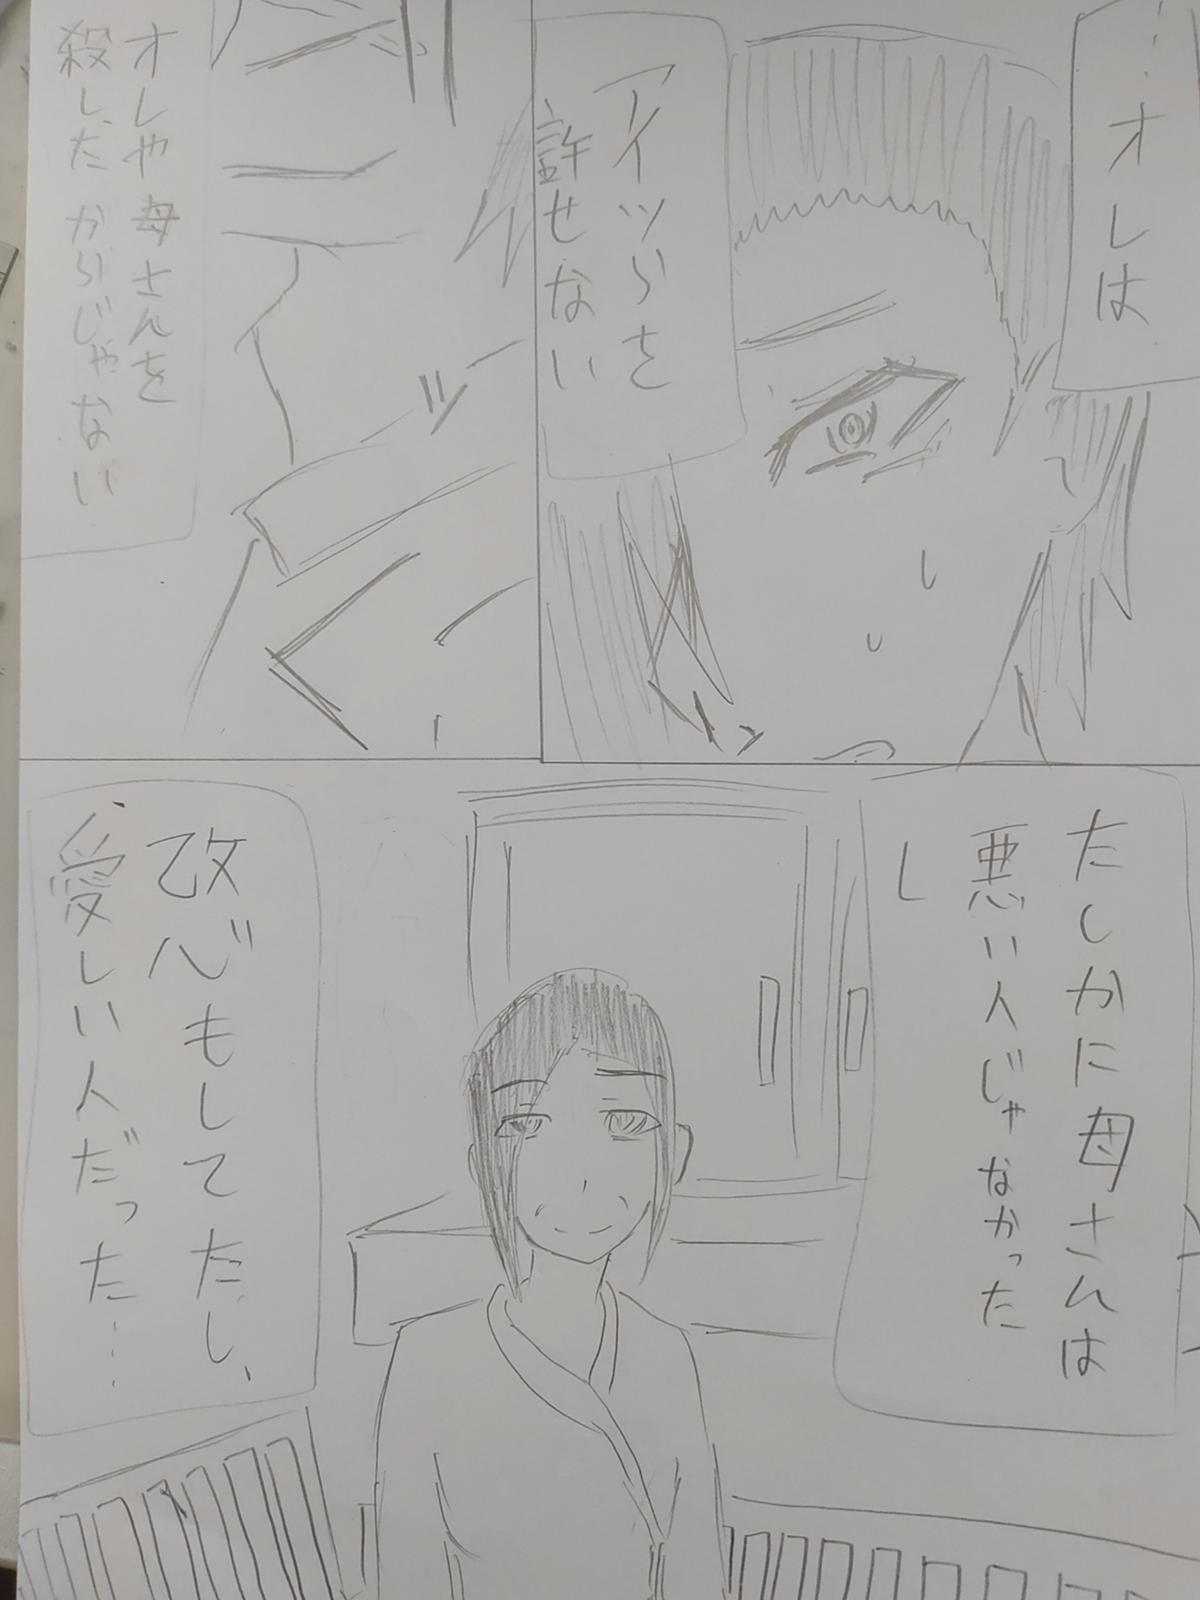 …オレは
アイツらを
許せない
ッ
オレや母さんを
殺したからじゃない
たしかに母さんは
悪い人じゃなかった
し
改心もしてたし、
愛しい人だった…